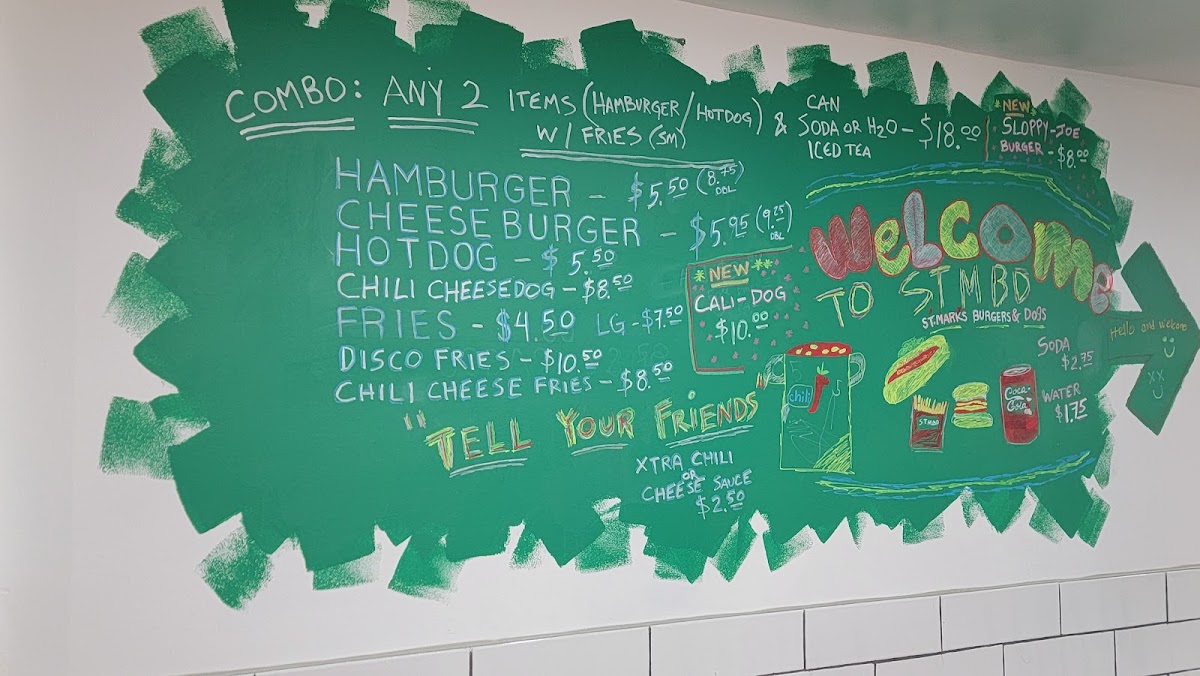 COMBO: ANY 2 ITEMS (HAMBURGER/HOTDOG) & CAN
W/ FRIES (SM)
SODA OR H2O - $18.00
ICED TEA
*NEW*
SLOPPY-JOE
BURGER - $8.00
HAMBURGER - $5.50 (8.75 DBL)
CHEESEBURGER - $5.95 (9.25 DBL)
HOTDOG - $5.50
CHILI CHEESEDOG - $8.50
FRIES - $4.50 LG - $7.50
DISCO FRIES - $10.50
CHILI CHEESE FRIES - $8.50
*NEW**
CALI-DOG
$10.00
"TELL YOUR FRIENDS"
XTRA CHILI
OR
CHEESE SAUCE
$2.50
WELCOME
TO STMBD
ST. MARKS BURGERS & DOGS
chili
STMBD
COCA-
COLA
SODA
$2.75
WATER
$1.75
Hello and welcome
xx